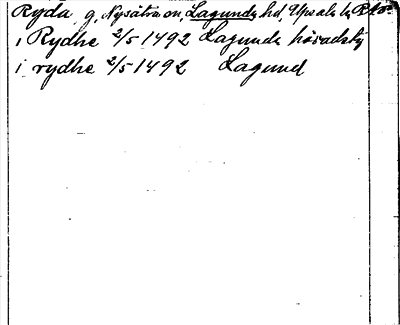 Ryda, g. Nysätra sn Lagunda hd, Upsala l.
i Rydhe 2/5 1492 Lagunda häradz
i rydhe 2/5 1492 Lagund